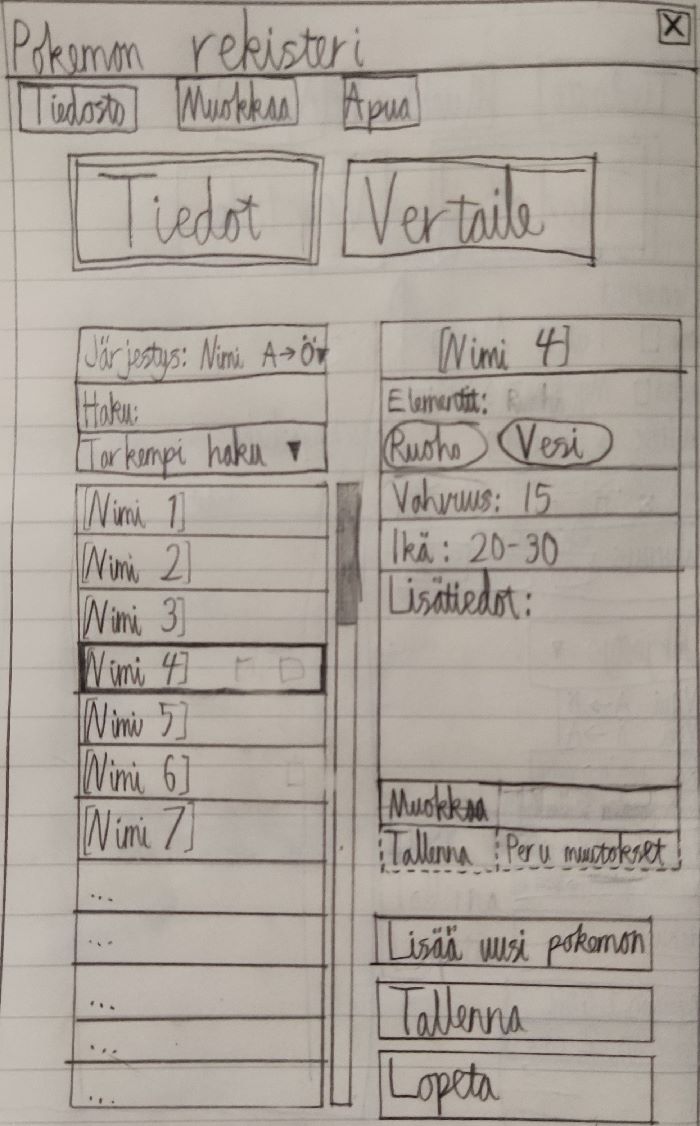 Pokemon rekisteri X
Tiedosto Muokkaa Apua
Tiedot Vertaile
Järjestys: Nimi A→Ö▾
Haku:
Tarkempi haku ▼
[Nimi 1]
[Nimi 2]
[Nimi 3]
[Nimi 4]
[Nimi 5]
[Nimi 6]
[Nimi 7]
...
...
...
...
...
[Nimi 4]
Elementit:
Ruoho Vesi
Vahvuus: 15
Ikä: 20-30
Lisätiedot:
Muokkaa
Tallenna Peru muutokset
Lisää uusi pokemon
Tallenna
Lopeta